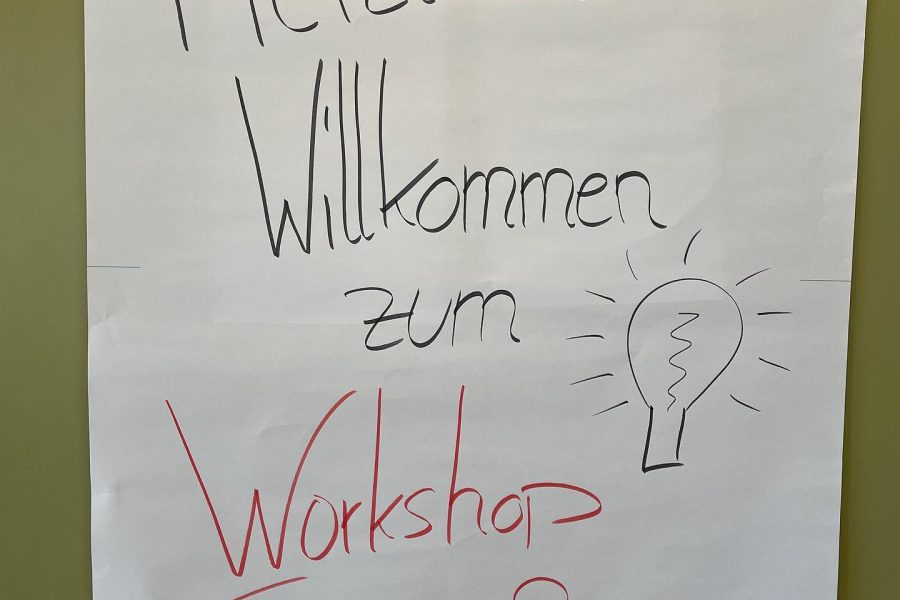 Willkommen
zum
Workshop